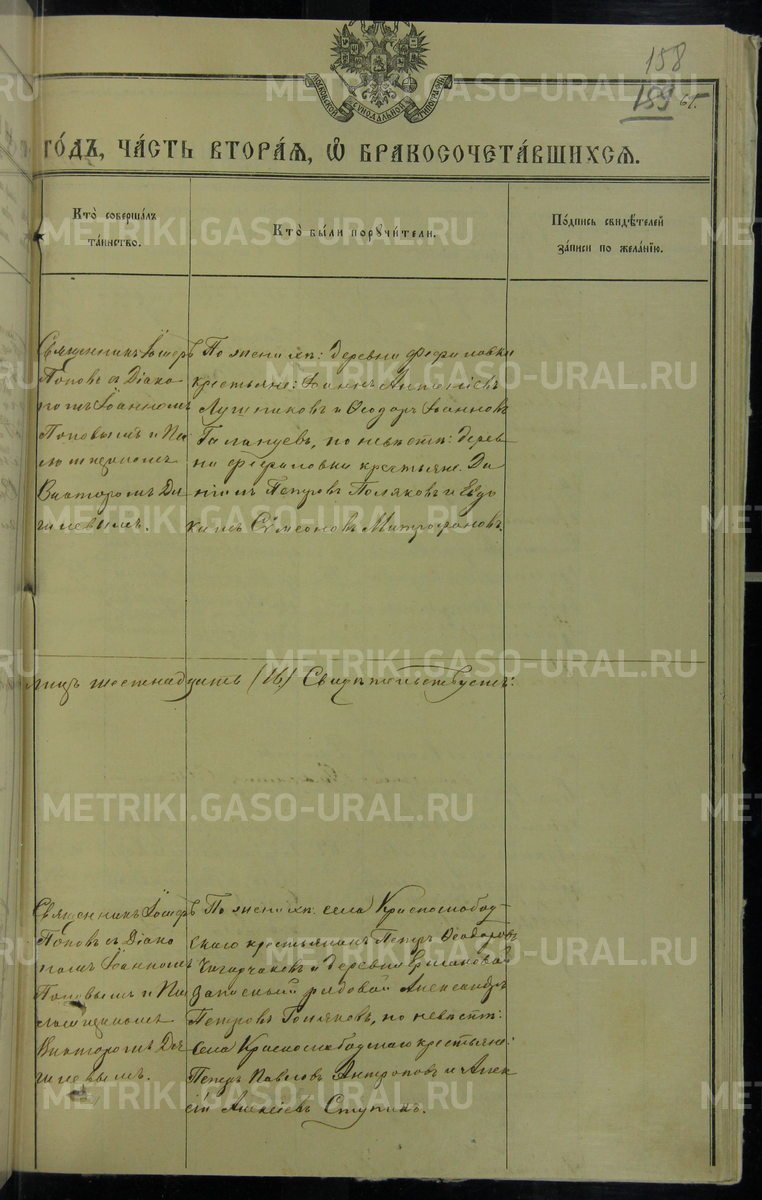 158
189 об.
МОСКОВСКОЙ СѴНОДАЛЬНОЙ ТИПОГРАФІИ
ГО́ДЪ, ЧА́СТЬ ВТОРА́Я, Ѡ БРАКОСОЧЕТА́ВШИХСЯ.
Кто̀ соверша́лъ
та́инство.
Кто̀ бы́ли порꙋчи́тели.
По́дпись свидѣ́телей
за́писи по жела́нїю.
Священникъ Іосифъ
Поповъ съ Діако
номъ Іоанномъ
Поповымъ и Пса
ломщикомъ
Викторомъ
По женихѣ: деревни
крестьяне: Іоаннъ Антоніевъ
Лушниковъ и Ѳеодоръ Іоанновъ
Галанцевъ, по невѣстѣ: дерев
ни крестьяне Да
ніилъ Петровъ Поляковъ и Евдо
кимъ Сѵмеоновъ Митрофановъ.
лицъ шестнадцать (16) Свидѣтельствуетъ:
Священникъ Іосифъ
Поповъ съ Діако
номъ Іоанномъ
Поповымъ и Пса
ломщикомъ
Викторомъ
По женихѣ: села Краснослобод-
скаго крестьянинъ Петръ Ѳеодоровъ
и деревни Ермаковой
запасный рядовой Александръ
Петровъ по невѣстѣ:
села Краснослободскаго крестьяне:
Петръ Павловъ Антроповъ и Алек
сій Алексіевъ Ступинъ.
METRIKI.GASO-URAL.RU